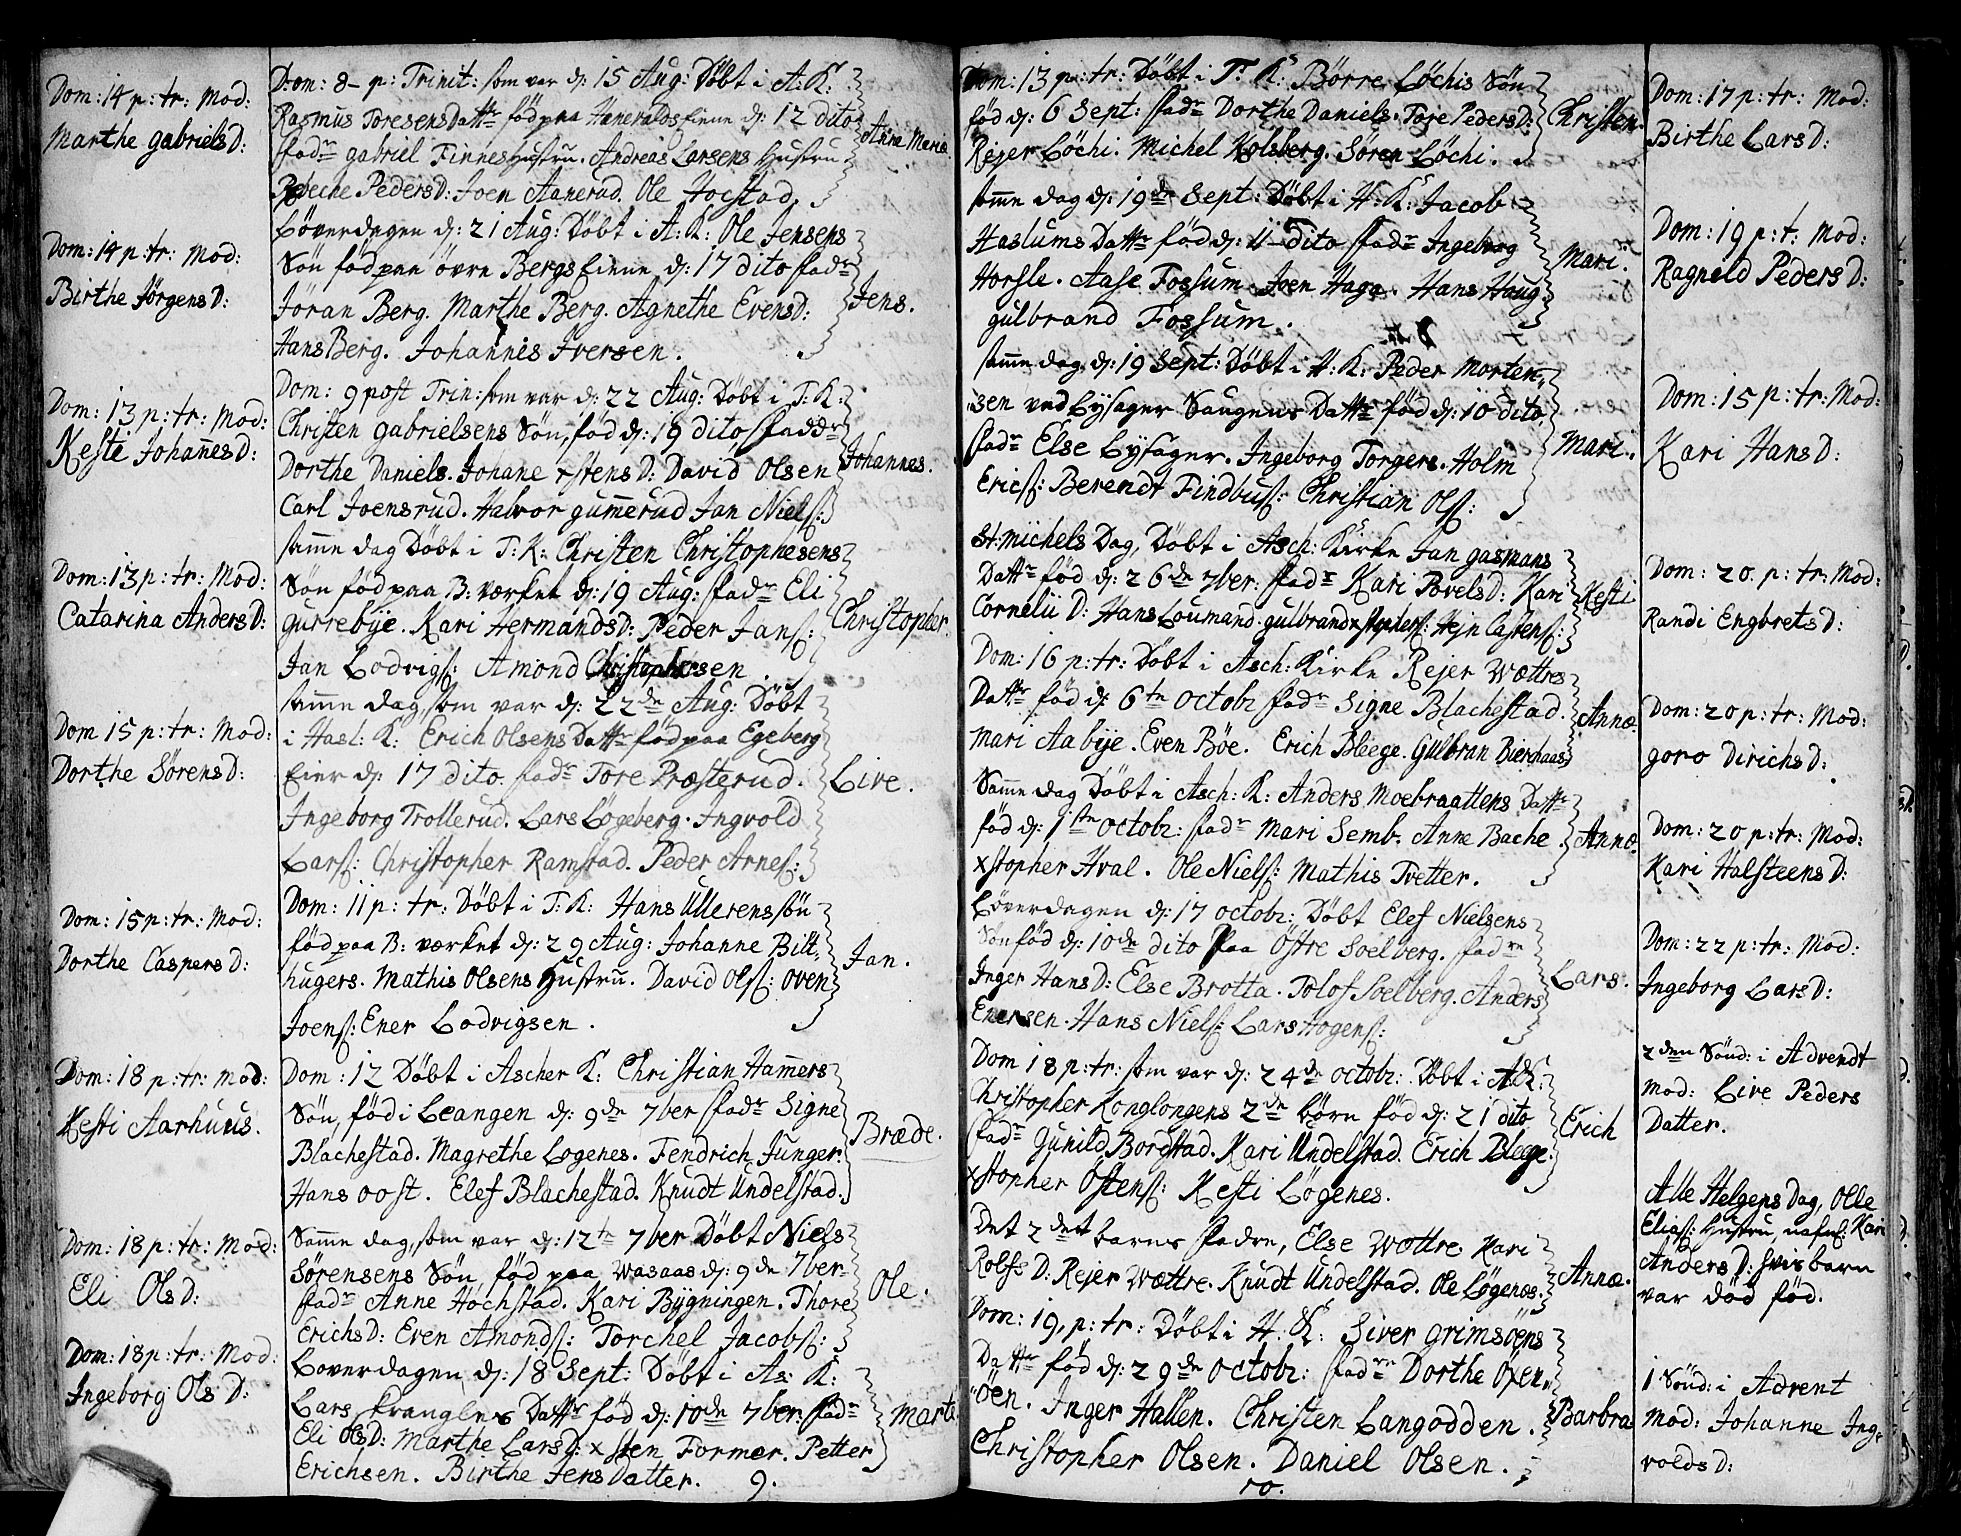 Dom: 14 p: tr: Mod:
Marthe gabriels D:
Dom: 14 p: tr: Mod:
Birthe Jörgens D:
Dom: 13 p: tr: Mod:
Kesti Johanes D:
Dom: 13 p: tr: Mod:
Catarina Anders D:
Dom 15 p: tr: Mod:
Dorthe Sörens D:
Dom: 15 p: tr: Mod:
Dorthe Caspers D:
Dom: 18 p: tr: Mod:
Kesti Aarhuus.
Dom: 18 p: tr: Mod:
Eli Ols D:
Dom: 18 p: tr: Mod:
Ingeborg Ols D:
Dom: 8 p: Trinit: som var d: 15 Aug: Döbt i A: K:
Rasmus Toresens Dattr föd paa Hanevalds Eiene d: 12 dito
fadr gabriel Finnes Hustru. Andreas Larsens Hustru
Rebeche Peders D: Joen Aanerud. Ole Hocstad.
Anne Maria.
Löverdagen d: 21 Aug: Döbt i A: K: Ole Jensens
Sön föd paa övre Bergs Eiene d: 17 dito fadr
Jöran Berg. Marthe Berg. Agnethe Evens D:
Hans Berg. Johannis Iversen.
Jens.
Dom: 9 post Trin: som var d: 22 Aug: Döbt i T: K:
Christen gabrielsens Sön, föd d: 19 dito faddr
Dorthe Daniels. Johane xstens D: David Olsen
Carl Joensrud. Halvor gumerud Jan Niels:
Johannes.
Same dag Döbt i T: K: Christen Christophesens
Sön föd paa B: værket d: 19 Aug: fadr Eli
gurrebye. Kari Hermands D: Peder Jans:
Jan Lodvigs: Amond Christophersen.
Christopher.
Same dag, som var d: 22de Aug: Döbt
i Hasl: K: Erich Olsens Dattr föd paa Egeberg
Eier d: 17 dito. fadr Tore Præsterud.
Ingeborg Trollerud. Lars Lögeberg. Ingvold
Lars: Christopher Ramstad. Peder Arnes:
Live.
Dom: 11 p: tr: Döbt i T: K: Hans Ullerens sön
föd paa B: værket d: 29 Aug: Johanne Bilt-
hugers. Mathis Olsens Hustru. David Ols: Oven
Joens: Ener Lodvigsen.
Jan.
Dom: 12 Döbt i Ascher K: Christian Hamers
Sön, föd i Leangen d: 9de 7ber fadr Signe
Blachestad. Magrethe Logenes. Fendrich Junger.
Hans oost. Elef Blachestad. Knudt Undelstad.
Bræde.
Same dag, som var d: 12te 7ber Döbt Niels
Sörensens Sön, föd paa Wasaas d: 9de 7ber
fadr Anne Hochstad. Kari Bygningen. Thore
Erichs D: Even Amonds: Torchel Jacobs:
Ole.
Loverdagen d: 18 Sept: Döbt i As: K:
Lars Krangles Dattr föd d: 10de 7ber fadr
Eli Ols D: Marthe Lars D: xsten Formær. Petter
Erichsen. Birthe Jens Datter.
Marte
9.
Dom: 13 p: tr: Döbt i T: K: Börre Löchis Sön
föd d: 6 Sept: fadr Dorthe Daniels. Tore Peders D:
Rejer Löchi. Michel Kolsberg. Sören Löchi.
Christen.
Same dag d: 19de Sept: Döbt i H: K: Jacob
Haslums Dattr föd d: 11 dito fadr Ingeborg
Horsle. Aase Fossum. Joen Haga. Hans Haug
gulbrand Fossum.
Mari.
Same dag. d: 19 Sept: Döbt i H: K: Peder Morten-
sen ved Lysager Saugens Dattr föd d: 10 dito
fadr Else Lysager. Ingeborg Torgers. Holm
Erics: Berendt Findbus: Christian Ols:
Mari.
St: Michels Dag, Döbt i Asch: Kirke Jan gasmans
Dattr föd d: 26de 7ber: fadr Kari Povels D: Kari
Cornelii D: Hans Loumand. gulbrand xstophers: Hejn Castens:
Kesti
Dom: 16 p: tr: Döbt i Asch: Kirke Rejer Wættres
Dattr föd d: 6te Octobr fadr Signe Blachestad.
Mari Aabye. Even Böe. Erich Bleege. Gulbran Bierchaas.
Annæ.
Same dag Döbt i Asch: K: Anders Moebraattens Dattr
föd d: 1ste Octobr: fadr Mari Semb. Anne Bache
xstopher Hval. Ole Niels: Mathis Tvetter.
Annæ.
Löverdagen d: 17 octobr: Döbt Elef Nielsens
Sön föd d: 10de dito paa Östre Soelberg. fadre
Inger Hans D: Else Brotta. Tolof Soelberg. Anders
Enersen. Hans Niels: Lars Hogens:
Lars.
Dom 18 p: tr: som var d: 24de octobr: Döbt i A: K:
Christopher Konglongens 2de börn föd d: 21 dito
fadr Gunild Borgstad. Kari Undelstad. Erich Bleege.
xstopher Östens: Kesti Lögenes.
Erich
Det 2det barns fadre, Else Wættre. Kari
Rolfs D: Rejer Wættre. Knudt Undelstad. Ole Lögenæs.
Annæ.
Dom: 19, p: tr: Döbt i H: K: Siver Grimsöens
Dattr föd d: 29de Octobr: fadre Dorthe Oxen-
öen. Inger Hallen. Christen Langodden.
Christopher Olsen. Daniel Olsen.
Barbra
10.
Dom: 17 p: tr: Mod:
Birthe Lars D:
Dom: 19 p: t: Mod:
Ragneld Peders D:
Dom: 15 p: tr: Mod:
Kari Hans D:
Dom: 20. p: tr: Mod:
Randi Engbrets D:
Dom: 20 p: tr: Mod:
goro Dirichs D:
Dom: 20 p: tr: Mod:
Kari Halsteens D:
Dom: 22 p: tr: Mod:
Ingeborg Lars D:
2den Sönd: i Advendt
Mod: Live Peders
Datter.
Alle Helgens Dag, Olle
Elias: Hustru, nafnl: Kari
Anders D: hvis barn
var död föd.
1 Sönd: i Advent
Mod: Johanne Ing-
volds D: